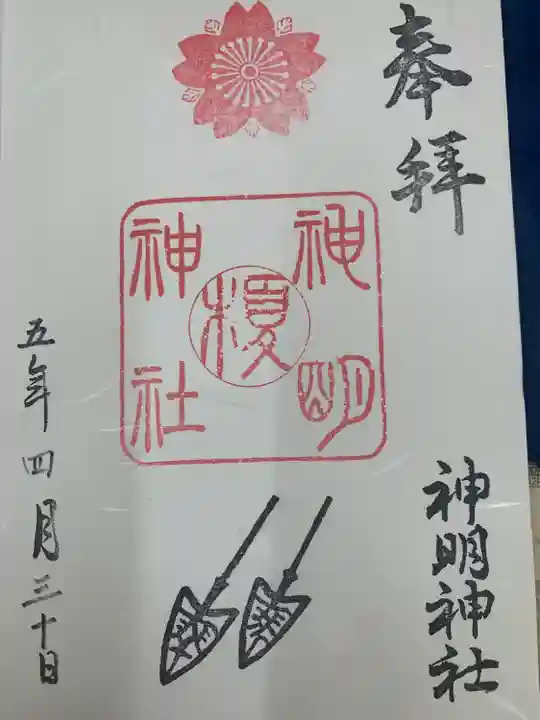 奉拝
神明神社
神明
榎
神社
五年四月三十日